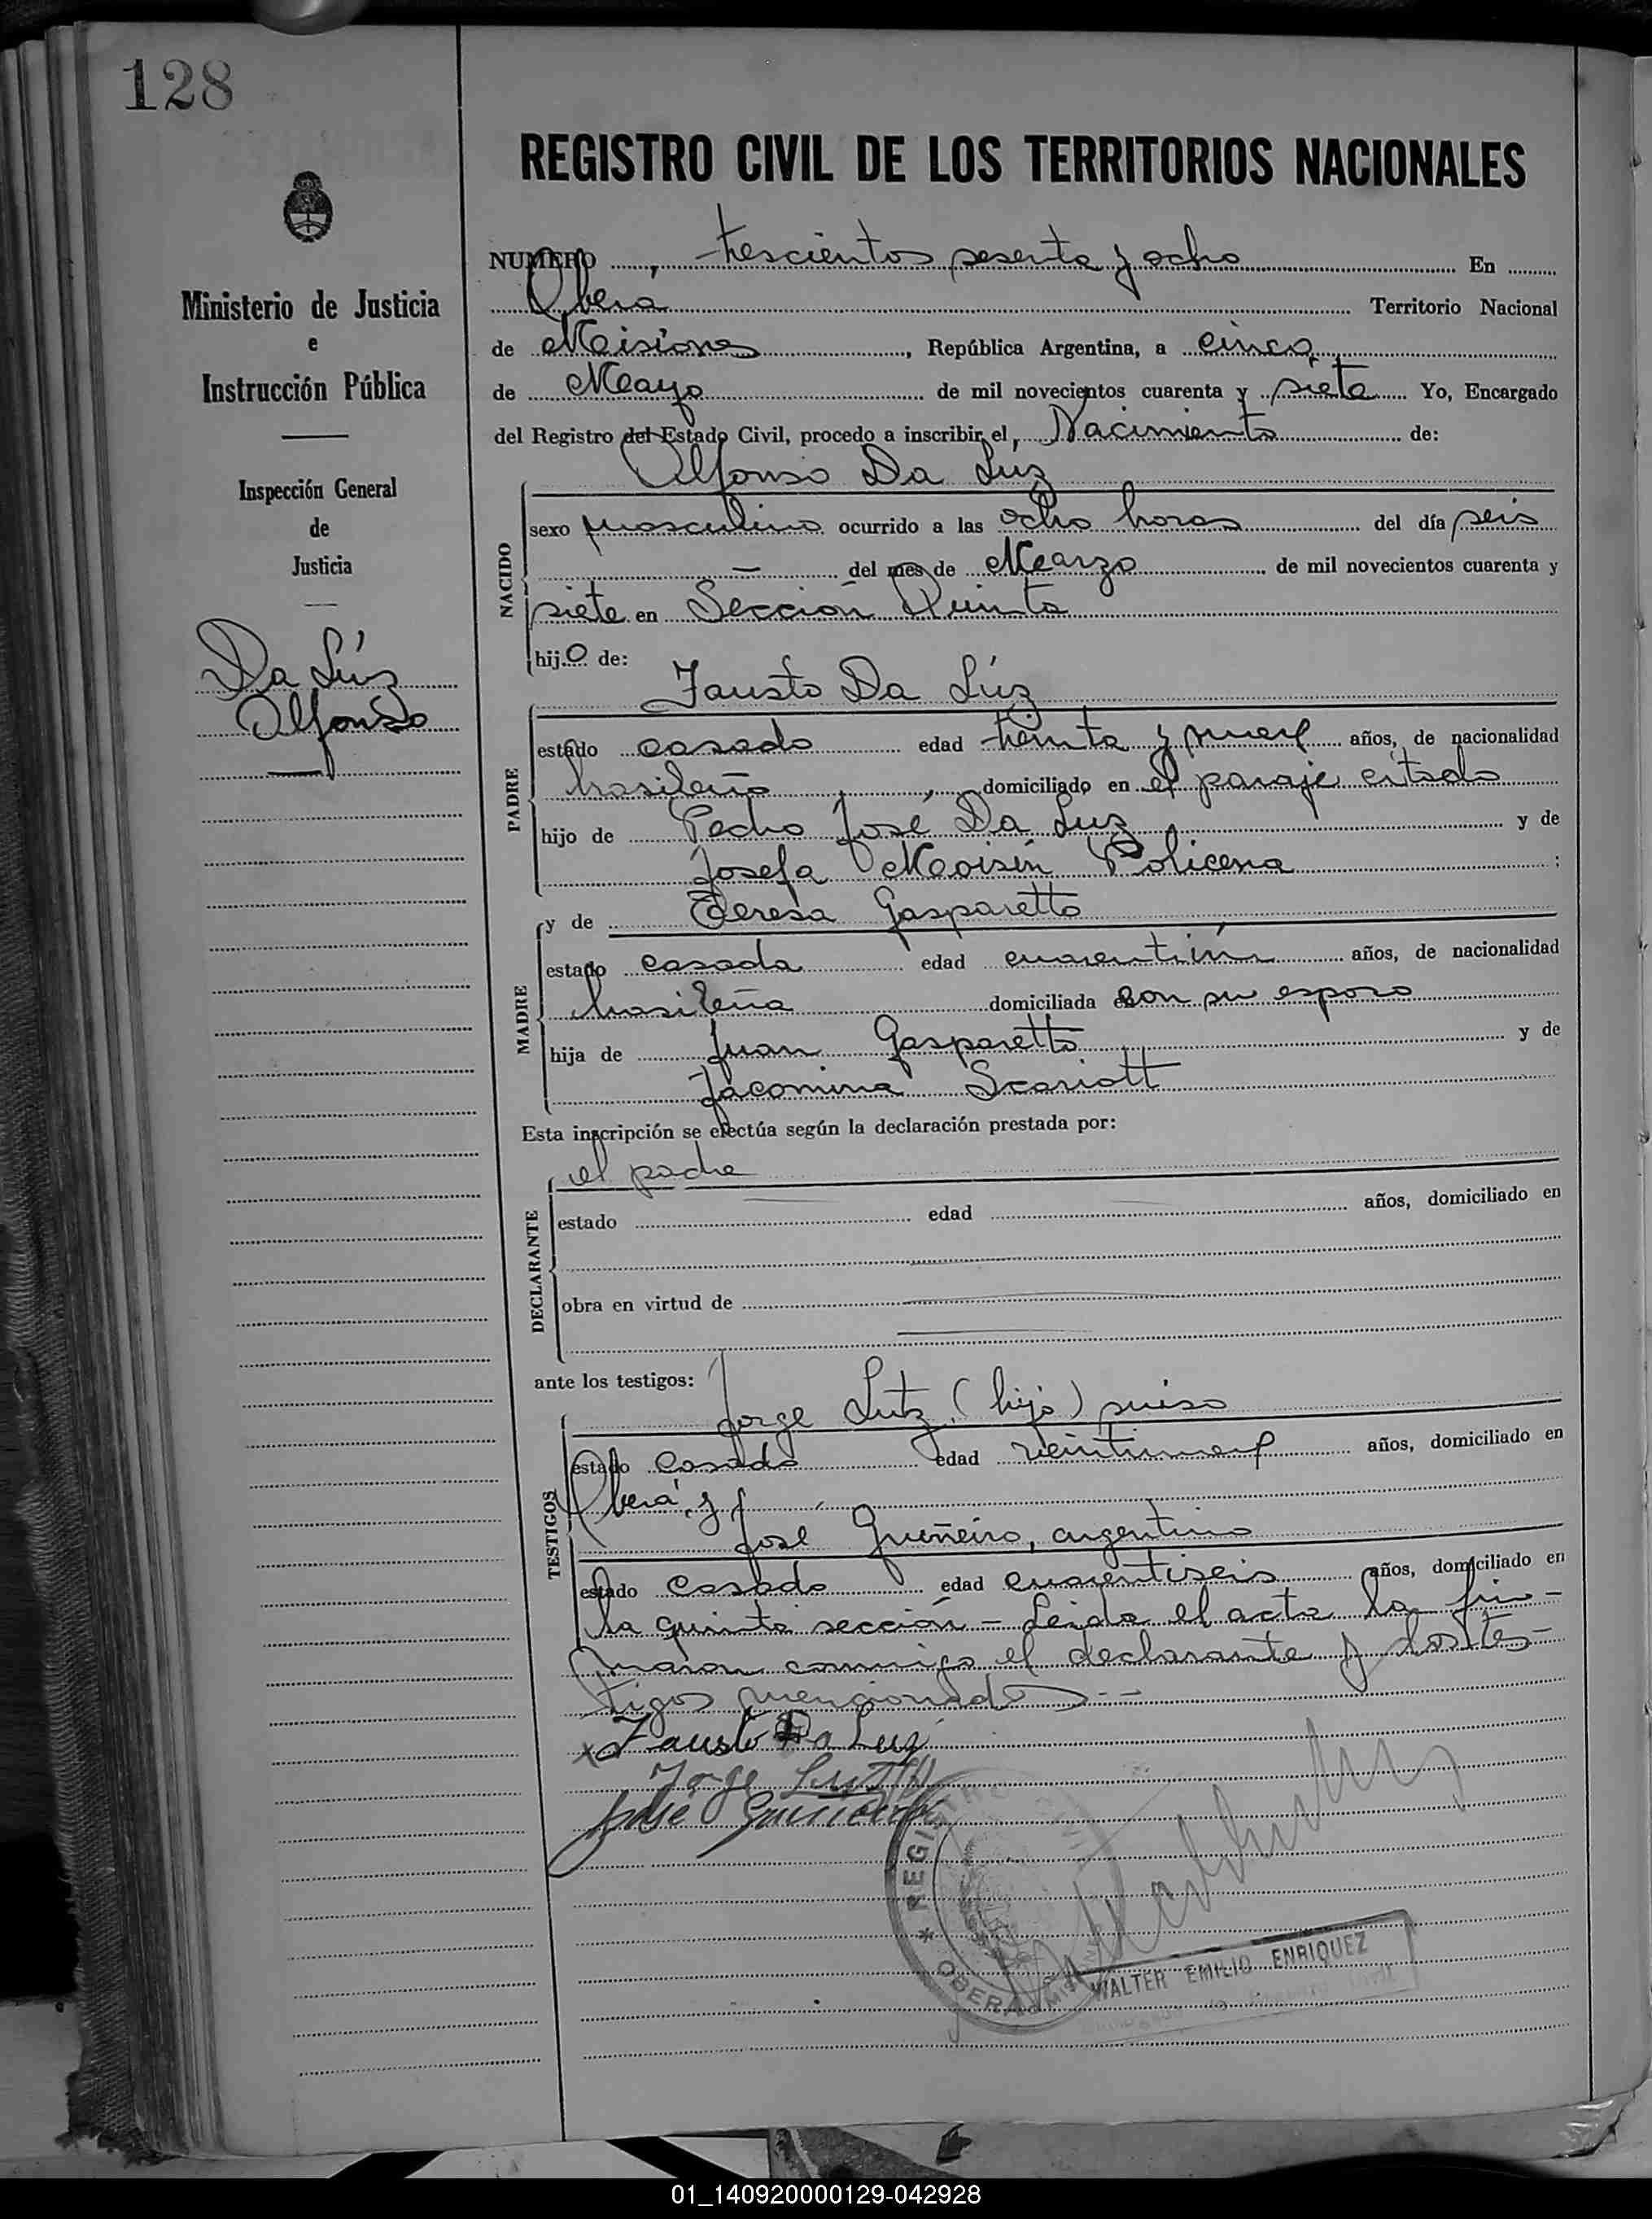 128
REGISTRO CIVIL DE LOS TERRITORIOS NACIONALES
Ministerio de Justicia
e
Instrucción Pública
Inspección General
de
Justicia
Da Lúz
Alfonso
NUMERO trescientos sesenta y ocho En
Oberá Territorio Nacional
de Misiones, República Argentina, a cinco
de Mayo de mil novecientos cuarenta y siete Yo, Encargado
del Registro del Estado Civil, procedo a inscribir el, Nacimiento de:
Alfonso Da Lúz
NACIDO
sexo masculino ocurrido a las ocho horas del día seis
— del mes de Marzo de mil novecientos cuarenta y
siete en Sección Quinta
hijo de:
Fausto Da Lúz
PADRE
estado casado edad treinta y nueve años, de nacionalidad
brasileño, domiciliado en el paraje citado
hijo de Pedro José Da Luz y de
Josefa Moisín Policena ;
y de Teresa Gasparetto
MADRE
estado casada edad cuarentiún años, de nacionalidad
brasileña domiciliada con su esposo
hija de Juan Gasparetto y de
Jacomina Scariott
Esta inscripción se efectúa según la declaración prestada por:
el padre
DECLARANTE
estado edad años, domiciliado en
obra en virtud de
ante los testigos:
Jorge Lutz (hijo) suiso
TESTIGOS
estado casado edad veintinueve años, domiciliado en
Oberá, y
José Guiñeiro, argentino
estado casado edad cuarentiseis años, domiciliado en
la quinta sección - Leída el acta la fir-
maron conmigo el declarante y los tes-
tigos mencionados --
x Fausto Da Luz
Jorge Lutz
José
REGISTRO
* OBERA
WALTER EMILIO ENRIQUEZ
01_140920000129-042928